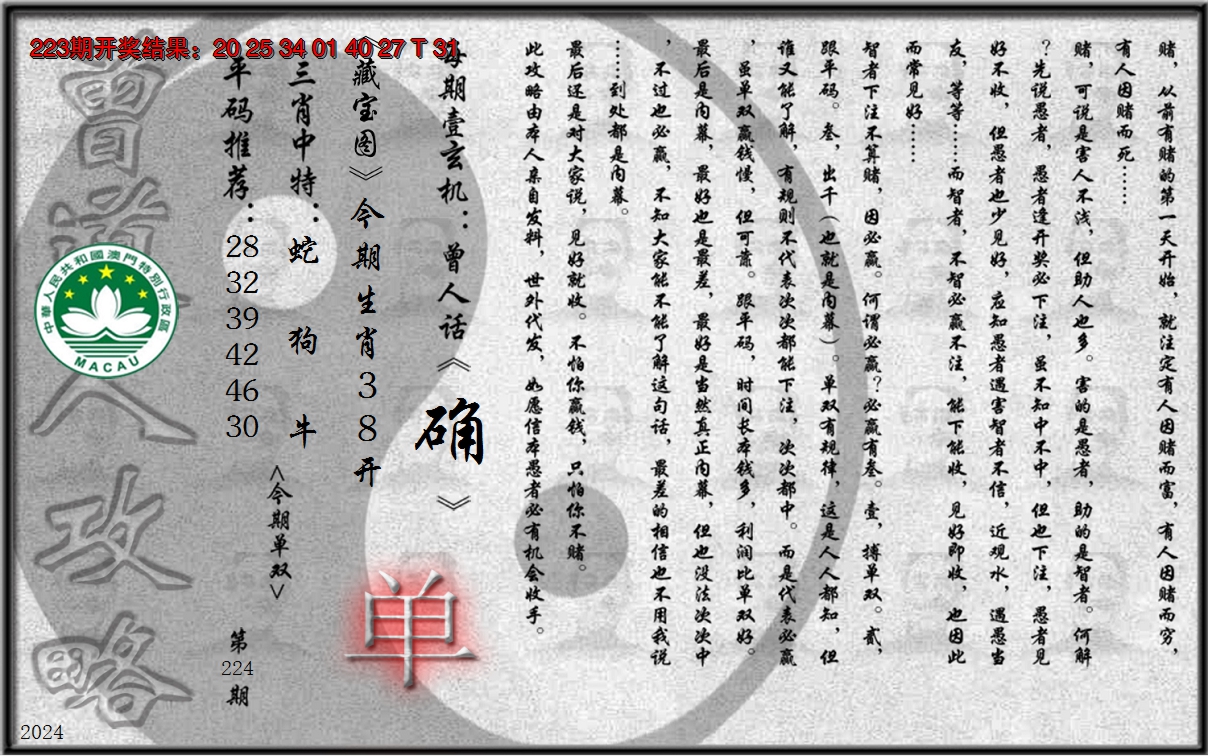 223期开奖结果：20 25 34 01 40 27 T 31
赌，从前有赌的第一天开始，就注定有人因赌而富，有人因赌而穷，
有人因赌而死……
赌，可说是害人不浅，但助人也多。害的是愚者，助的是智者。何解
？先说愚者，愚者逢开奖必下注，虽不知中不中，但也下注，愚者见
好不收，但愚者也少见好，应知愚者遇害智者不信，近观水，遇愚当
友，等等……而智者，不智必赢不注，能下能收，见好即收，也因此
而常见好……
智者下注不算赌，因必赢。何谓必赢？必赢有叁。壹，搏单双。贰，
跟平码。叁，出千（也就是内幕）。单双有规律，这是人人都知，但
谁又能了解，有规则不代表次次都能下注，次次都中。而是代表必赢
，虽单双赢钱慢，但可靠。跟平码，时间长本钱多，利润比单双好。
最后是内幕，最好也是最差，最好是当然真正内幕，但也没法次次中
，不过也必赢，不知大家能不能了解这句话，最差的相信也不用我说
……到处都是内幕。
最后还是对大家说，见好就收。不怕你赢钱，只怕你不赌。
此攻略由本人亲自发料，世外代发，如愿信本愚者必有机会收手。
每期壹玄机：曾人话《确》
《藏宝图》今期生肖38开
三肖中特：蛇 狗 牛
平码推荐：28 32 39 42 46 30
<今期单双>
单
第224期
曾道人攻略
中華人民共和國澳門特別行政區
MACAU
2024